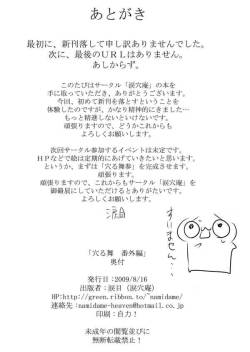 あとがき
最初に、新刊落して申し訳ありませんでした。
次に、最後のＵＲＬはありません。
あしからず。
このたびはサークル「涙穴庵」の本を
手に取っていただき、ありがとうございます。
今回、初めて新刊を落とすということを
体験したのですが、かなり精神的にきました…
もっと精進しないといけないです。
頑張りますので、どうかこれからも
よろしくお願いします。
次回サークル参加するイベントは未定です。
ＨＰなどで絵は定期的にあげていきたいと思います。
とりあえず、まずは「穴る舞参」を完成させます。
頑張りますので、これからもサークル「涙穴庵」を
御贔屓にしていただけるとありがたいです。
よろしくお願いします。
涙目
すいません…
「穴る舞　番外編」
奥付
発行日：2009/8/16
出版者：涙目（涙穴庵）
HP:http://green.ribbon.to/~namidame/
連絡先：namidame-heaven@hotmail.co.jp
印刷：自力！
未成年の閲覧並びに
無断転載禁止！